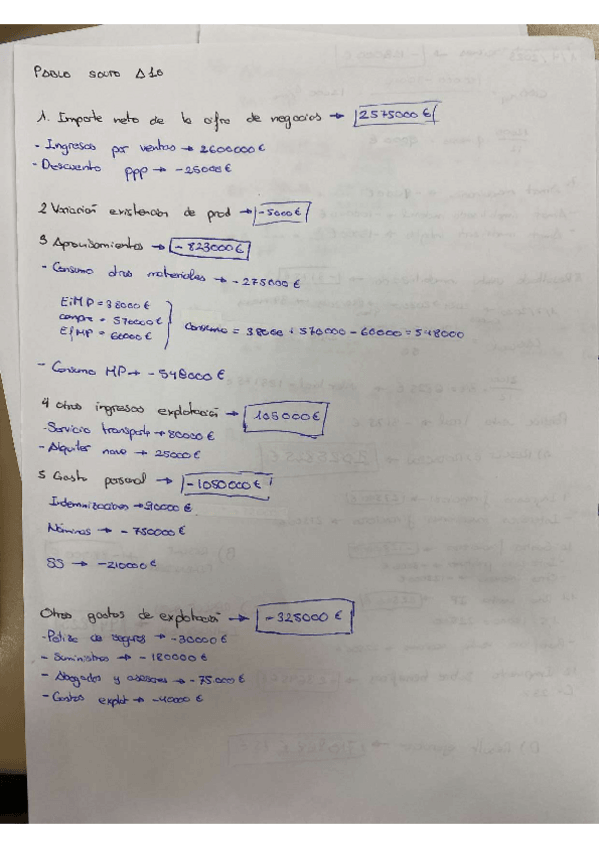 PABLO SOUTO A10
1. Importe neto de la cifra de negocios → 2575000 €
- Ingresos por ventas → 2600000 €
- Descuento ppp → -25000 €
2 Variación existencias de prod → -5000 €
3 Aprovisionamientos → -823000 €
- Consumo otros materiales → -275000 €
EiMP = 38000 €
compra = 570000 €
EfMP = 60000 €
Consumo = 38000 + 570000 - 60000 = 548000
- Consumo MP → -548000 €
4 Otros ingresos explotación → 105000 €
- Servicio transporte → 80000 €
- Alquiler nave → 25000 €
5 Gasto personal → -1050000 €
Indemnizaciones → 90000 €
Nóminas → - 750000 €
SS → -210000 €
Otros gastos de explotación → -325000 €
- Poliza de seguros → -30000 €
- Suministros → - 180000 €
- Abogados y asesores → -75000 €
- Gastos explot → -40000 €